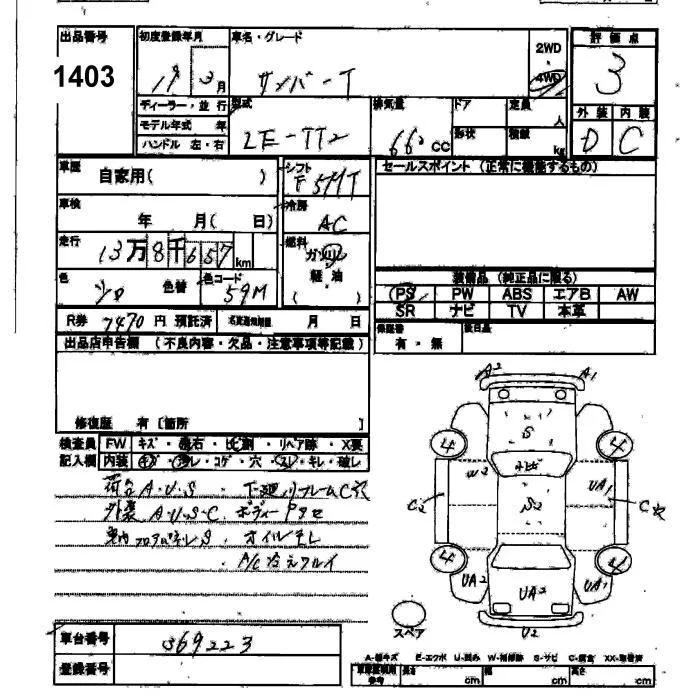 出品番号
1403
初度登録年月
月
車名・グレード
サンバーT
2WD
・
4WD
評価点
3
外装 内装
D C
ディーラー・並行
モデル年式 年
ハンドル 左・右
型式
LE-TT2
排気量
660 CC
ドア
形状
定員
人
積載
kg
車歴
自家用( )
シフト
F5MT
セールスポイント (正常に機能するもの)
車検
年 月( 日)
冷房
AC
走行
13万8千657km
燃料
ガソリン
軽・油
( )
色
シロ
色替
色コード
59M
装備品 (純正品に限る)
PS PW ABS エアB AW
SR ナビ TV 本革
R券 7470 円 預託済
月 日
保証書
有・無
後日品
出品店申告欄 (不良内容・欠品・注意事項等記載)
修復歴 有 [箇所 ]
検査員 FW キズ・飛石・ヒビ割・リペア跡・X要
記入欄 内装 キズ・汚レ・コゲ・穴・スレ・キレ・破レ
荷台A・U・S・下廻りフレームC穴
外装A・U・S・C、ボディーPダセ
オイルモレ
・A/C冷えワルイ
A2 A1
S
4 4
W2
UA1
C2
S2
C穴
4 4
UA2
UA2
UA1
U2
スペア
A-線キズ E-エクボ U-凹み W-補修跡 S-サビ C-腐食 XX-取替済
車台番号
369223
登録番号
長さ cm 幅 cm 高さ cm